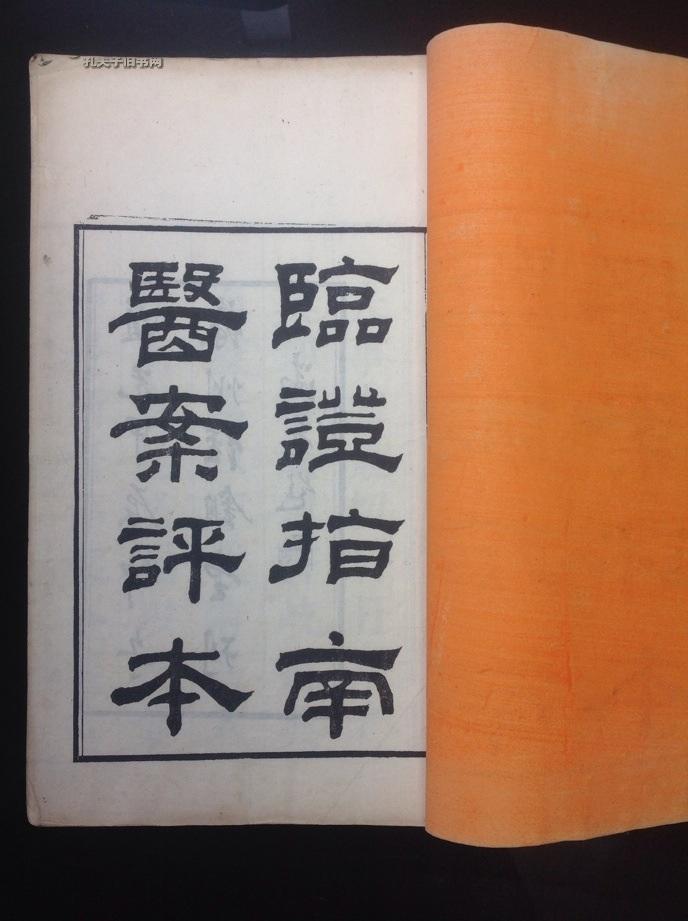 孔夫子旧书网
臨證指南
醫案評本